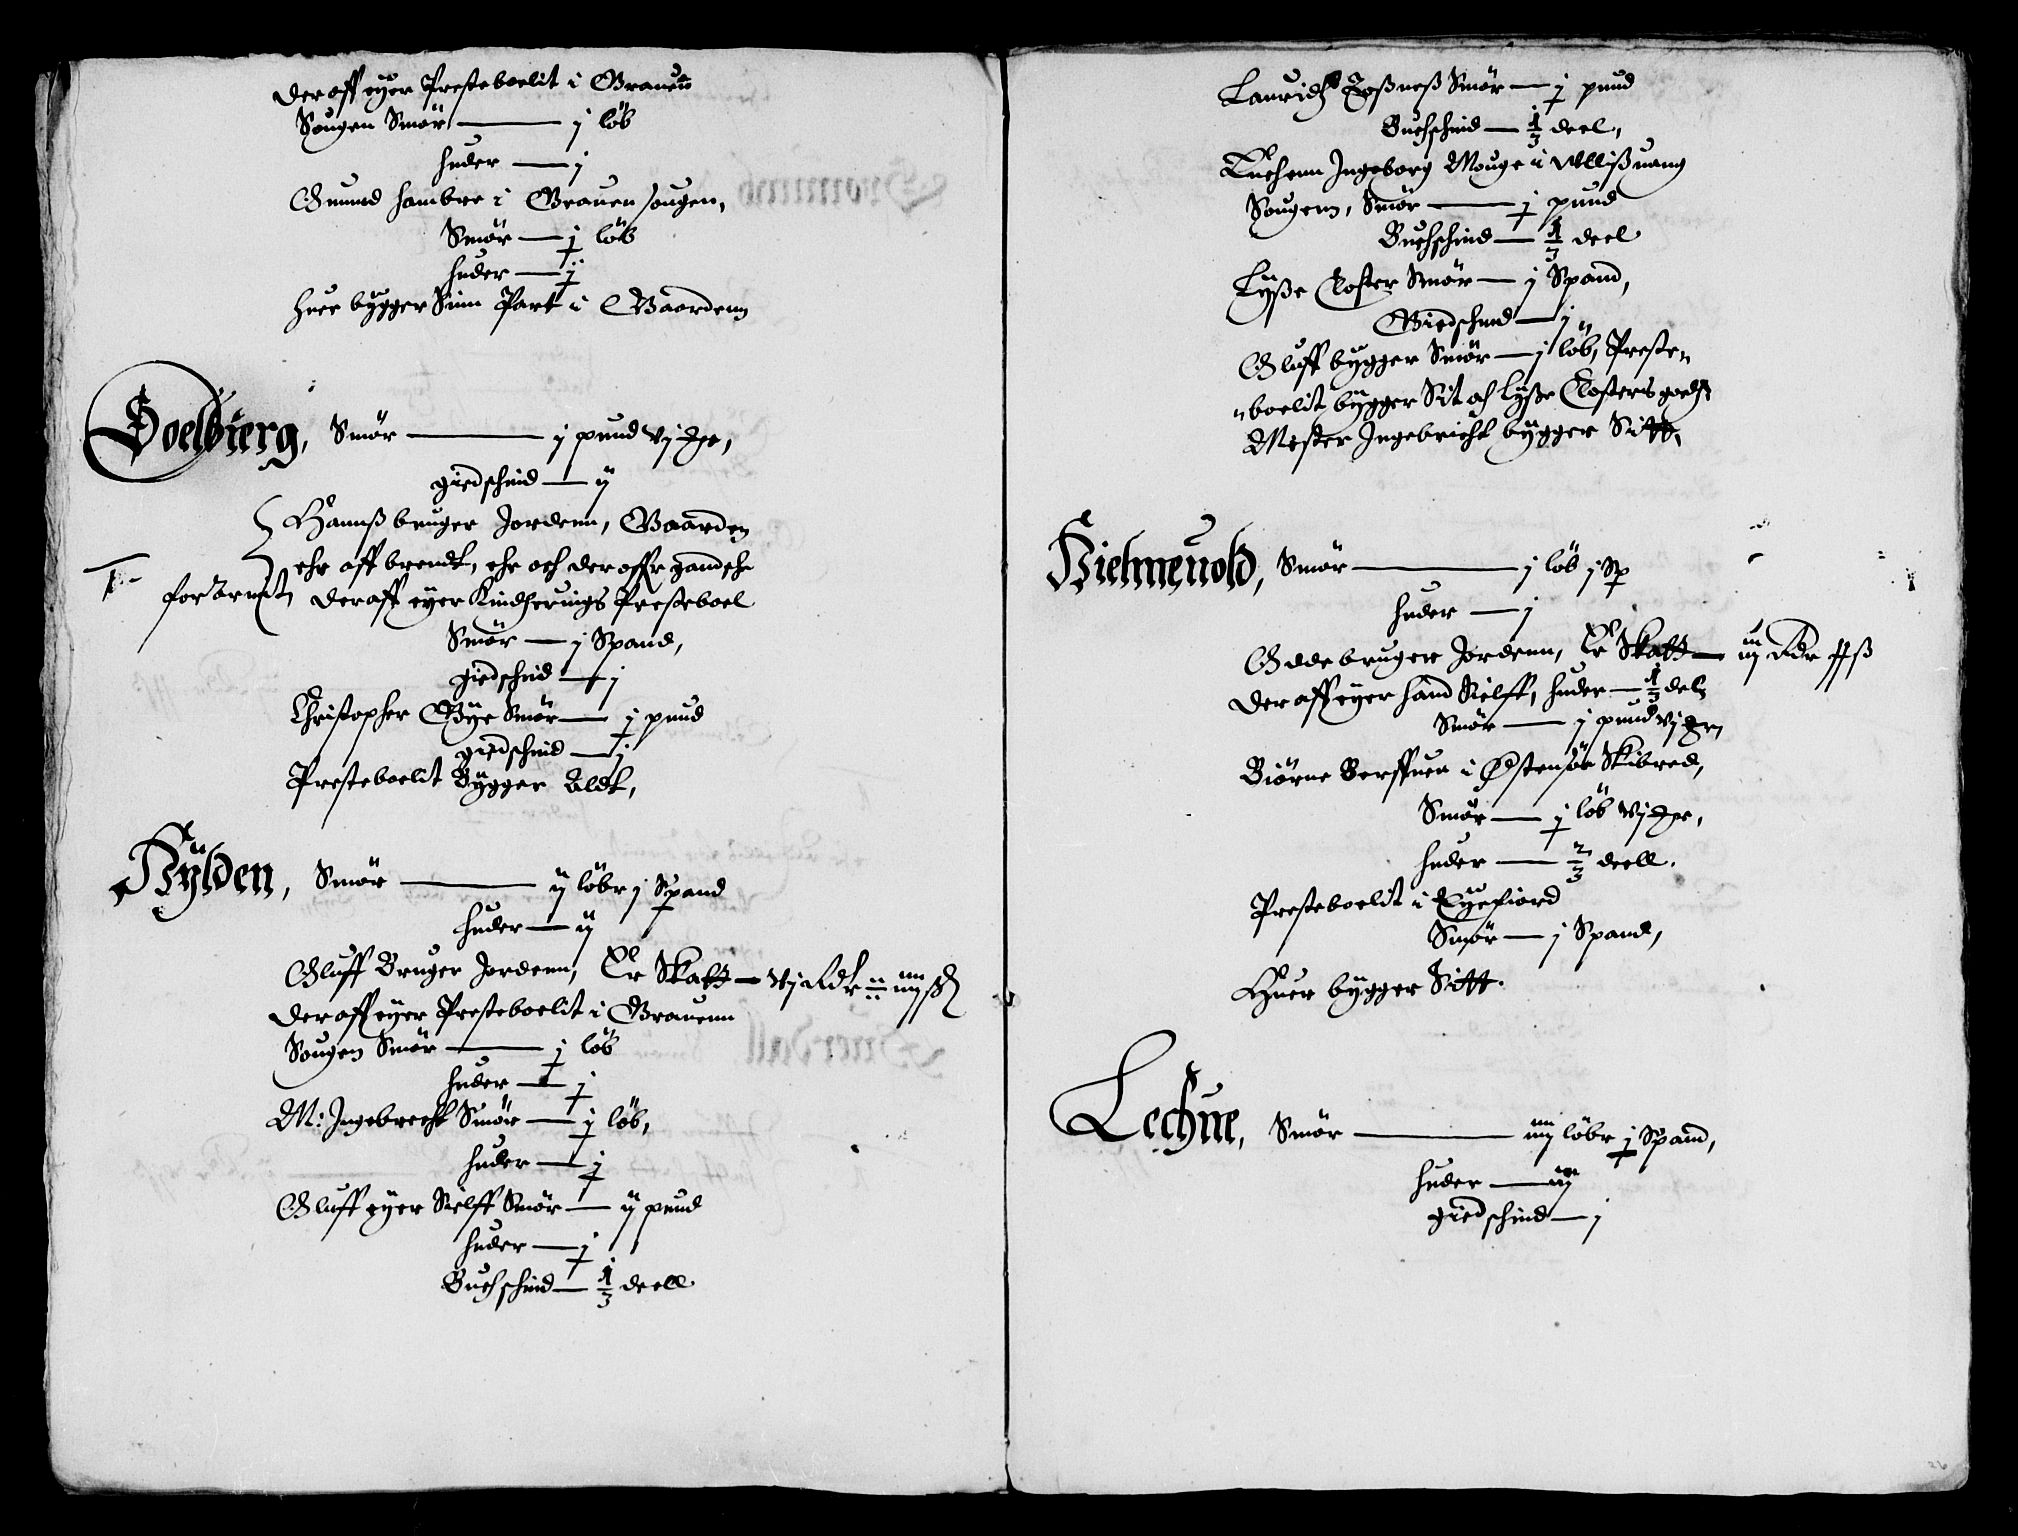 Deraff eyer Presteboelit i Grauen
Sougen Smør — j løb
huder — j
Gmund hambre i Grauen sougen,
Smør — j løb
huder — j
huer bygger Sinn Part i Gaardenn
Doelbierg, Smør — j pund vj
giedschind — ij
Hannß bruger Jordenn, Gaarden
ehr aff brendt, ehr och deroffr gandsche
forarmit, Deraff eyer Kindheruigs Presteboel
Smør — j Spand,
giedschid — j
Christopher Gye Smør — j pund
giedschind — j
Presteboelit Bygger Aldt,
Hylden, Smør — ij løbr j Spand
huder — ij
Oluff Bruger Jordenn, Er Skatt — vj Rdr iiij ß
Deraff eyer Presteboelit i Grauenn
Sougen Smør — j løb
huder — j
M: Ingebrecht Smør — j løb,
huder — j
Oluff eyer Sielff Smør — ij pund
huder — j
Buchschind — 1/3 deell
Lauridtz Smør — j pund
Buchschind — 1/3 deel,
Erchenn Ingeborg Mouge i Ullißuang
Sougenn, Smør — j pund
Buchschind — 1/3 deel
Lyße Closter Smør — j Spand,
Giedschind — j
Oluff bygger Smør — j løb, Preste„
„boelit bygger Sit och Lyße Closters godtz
Mester Ingebricht bygger Sitt,
Hielmeuold, Smør — j løb j Sp
huder — j
Odde bruger Jordenn, Er Skatt — iij Rdr ß
Deraff eyer hand Sielff, huder — 1/3 del
Smør — j pund vj
Biørne Berffuen i Østensøe Skibred,
Smør — j løb vj
huder — 2/3 deell.
Presteboelit i Eyefiord
Smør — j Spand,
Huer bygger Sitt.
Lechue, Smør — iiij løbr j Spand,
huder — iij
giedschind — j